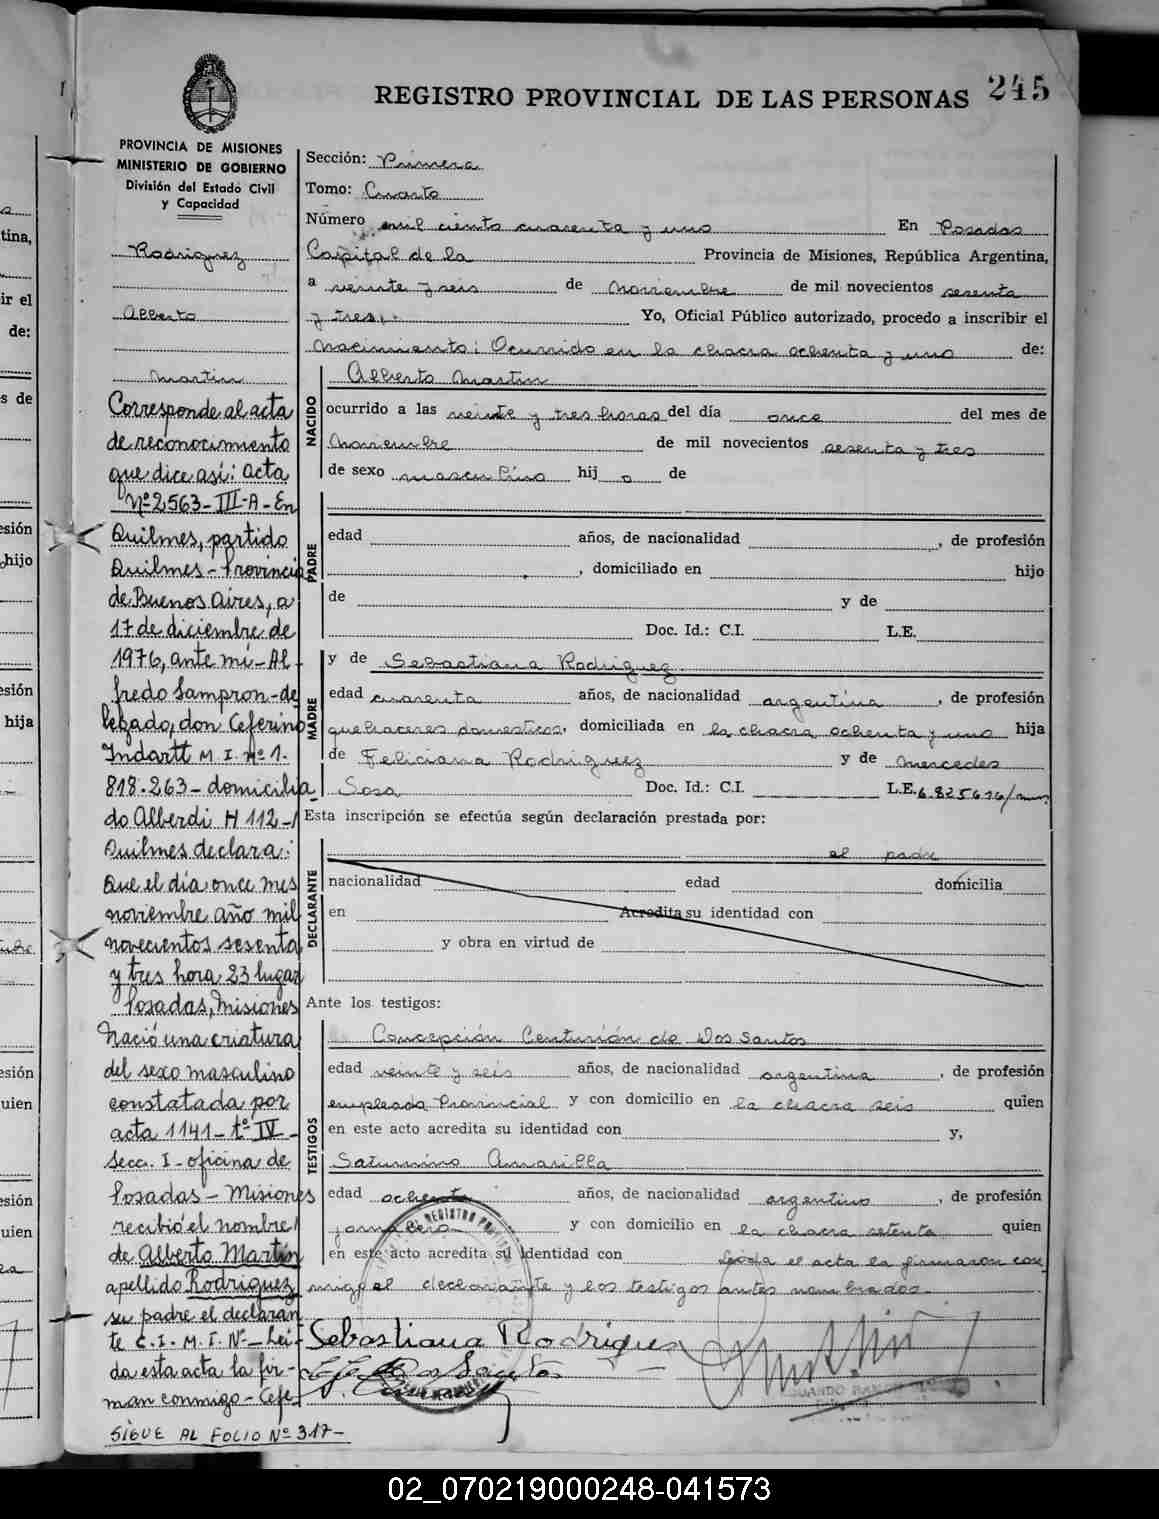 245
REGISTRO PROVINCIAL DE LAS PERSONAS
PROVINCIA DE MISIONES
MINISTERIO DE GOBIERNO
División del Estado Civil
y Capacidad
Rodriguez
Alberto
Martin
Corresponde al acta
de reconocimiento
que dice asi: acta
Nº 2563-III-A-En
Quilmes, partido
Quilmes - Provincia
de Buenos Aires, a
17 de diciembre de
1976, ante mi - Al
fredo Sampron - de
legado, don Ceferino
Indartt M.I. nº 1.
818.263 - domicilia
do Alberdi H 112 -
Quilmes declara:
Que el día once mes
noviembre año mil
novecientos sesenta
y tres hora 23 lugar
Posadas, Misiones
Nació una criatura
del sexo masculino
constatada por
acta 1141 - tº IV -
Secc. I - oficina de
Posadas - Misiones
recibió el nombre
de Alberto Martín
apellido Rodriguez
su padre el declaran
te C.I. M.I. Nº - Leí
da esta acta la fir-
man conmigo - Cefe
SIGUE AL FOLIO Nº 317 -
Sección: Primera
Tomo: Cuarto
Número mil ciento cuarenta y uno En Posadas
Capital de la Provincia de Misiones, República Argentina,
a veinte y seis de Noviembre de mil novecientos sesenta
y tres. Yo, Oficial Público autorizado, procedo a inscribir el
nacimiento: Ocurrido en la chacra ochenta y uno de:
NACIDO
Alberto Martin
ocurrido a las veinte y tres horas del día once del mes de
Noviembre de mil novecientos sesenta y tres
de sexo masculino hij o de
PADRE
edad años, de nacionalidad , de profesión
, domiciliado en hijo
de y de
Doc. Id.: C.I. L.E.
MADRE
y de Sebastiana Rodriguez
edad cuarenta años, de nacionalidad argentina , de profesión
quehaceres domesticos, domiciliada en la chacra ochenta y uno hija
de Feliciana Rodriguez y de Mercedes
Sosa Doc. Id.: C.I. L.E. 6.825616
Esta inscripción se efectúa según declaración prestada por:
DECLARANTE
el padre
nacionalidad edad domicilia
en Acredita su identidad con
y obra en virtud de
Ante los testigos:
TESTIGOS
Concepción Centurión de Dos Santos
edad veinte y seis años, de nacionalidad argentina , de profesión
empleada Provincial y con domicilio en la chacra seis quien
en este acto acredita su identidad con y,
Saturnino Amarilla
edad ochenta años, de nacionalidad argentino , de profesión
jornalero y con domicilio en la chacra setenta quien
en este acto acredita su identidad con Leida el acta la firmaron con
migo el declarante y los testigos antes nombrados.
Sebastiana Rodrigues
02_070219000248-041573